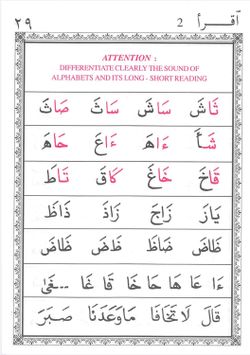 ٢٩ 2 اقرأ
ATTENTION :
DIFFERENTIATE CLEARLY THE SOUND OF
ALPHABETS AND ITS LONG - SHORT READING
ثَاشَ سَاشَ سَاثَ صَاثَ
شَأَ ءَاهَ ءَاعَ حَاهَ
قَاخَ خَاغَ كَاقَ تَاطَ
يَازَ زَاجَ زَاذَ ذَاظَ
ظَاضَ ضَاظَ ظَضَ ظَاضَ
ءَا عَا هَا حَا خَا قَا غَا
قَالَ لَا تَخَافَا مَاوَعَدَنَا صَبَرَ